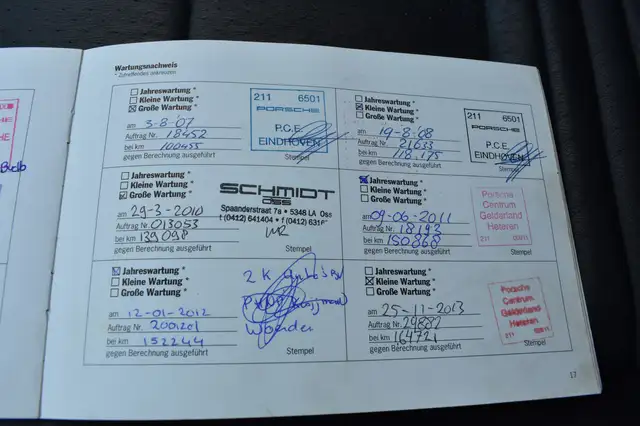 Wartungsnachweis
* Zutreffendes ankreuzen
Jahreswartung *
Kleine Wartung *
Große Wartung *
am 3-8-'07
Auftrag Nr. 18452
bei km 100455
gegen Berechnung ausgeführt
211 6501
PORSCHE
P.C.E.
EINDHOVEN
Stempel
Jahreswartung *
Kleine Wartung *
Große Wartung *
am 19-8-'08
Auftrag Nr. 21633
bei km 118.175
gegen Berechnung ausgeführt
211 6501
PORSCHE
P.C.E.
EINDHOVEN
Stempel
Jahreswartung *
Kleine Wartung *
Große Wartung *
am 29-3-2010
Auftrag Nr. 013053
bei km 139098
gegen Berechnung ausgeführt
SCHMIDT
OSS
Spaanderstraat 7a • 5348 LA Oss
t (0412) 641404 • f (0412) 631
Stempel
Jahreswartung *
Kleine Wartung *
Große Wartung *
am 09-06-2011
Auftrag Nr. 18193
bei km 150868
gegen Berechnung ausgeführt
Porsche
Centrum
Gelderland
Heteren
Stempel
Jahreswartung *
Kleine Wartung *
Große Wartung *
am 12-01-2012
Auftrag Nr.
bei km 152244
gegen Berechnung ausgeführt
Stempel
Jahreswartung *
Kleine Wartung *
Große Wartung *
am 25-11-2013
Auftrag Nr. 29887
bei km 164721
gegen Berechnung ausgeführt
Porsche
Centrum
Gelderland
Heteren
Stempel
17